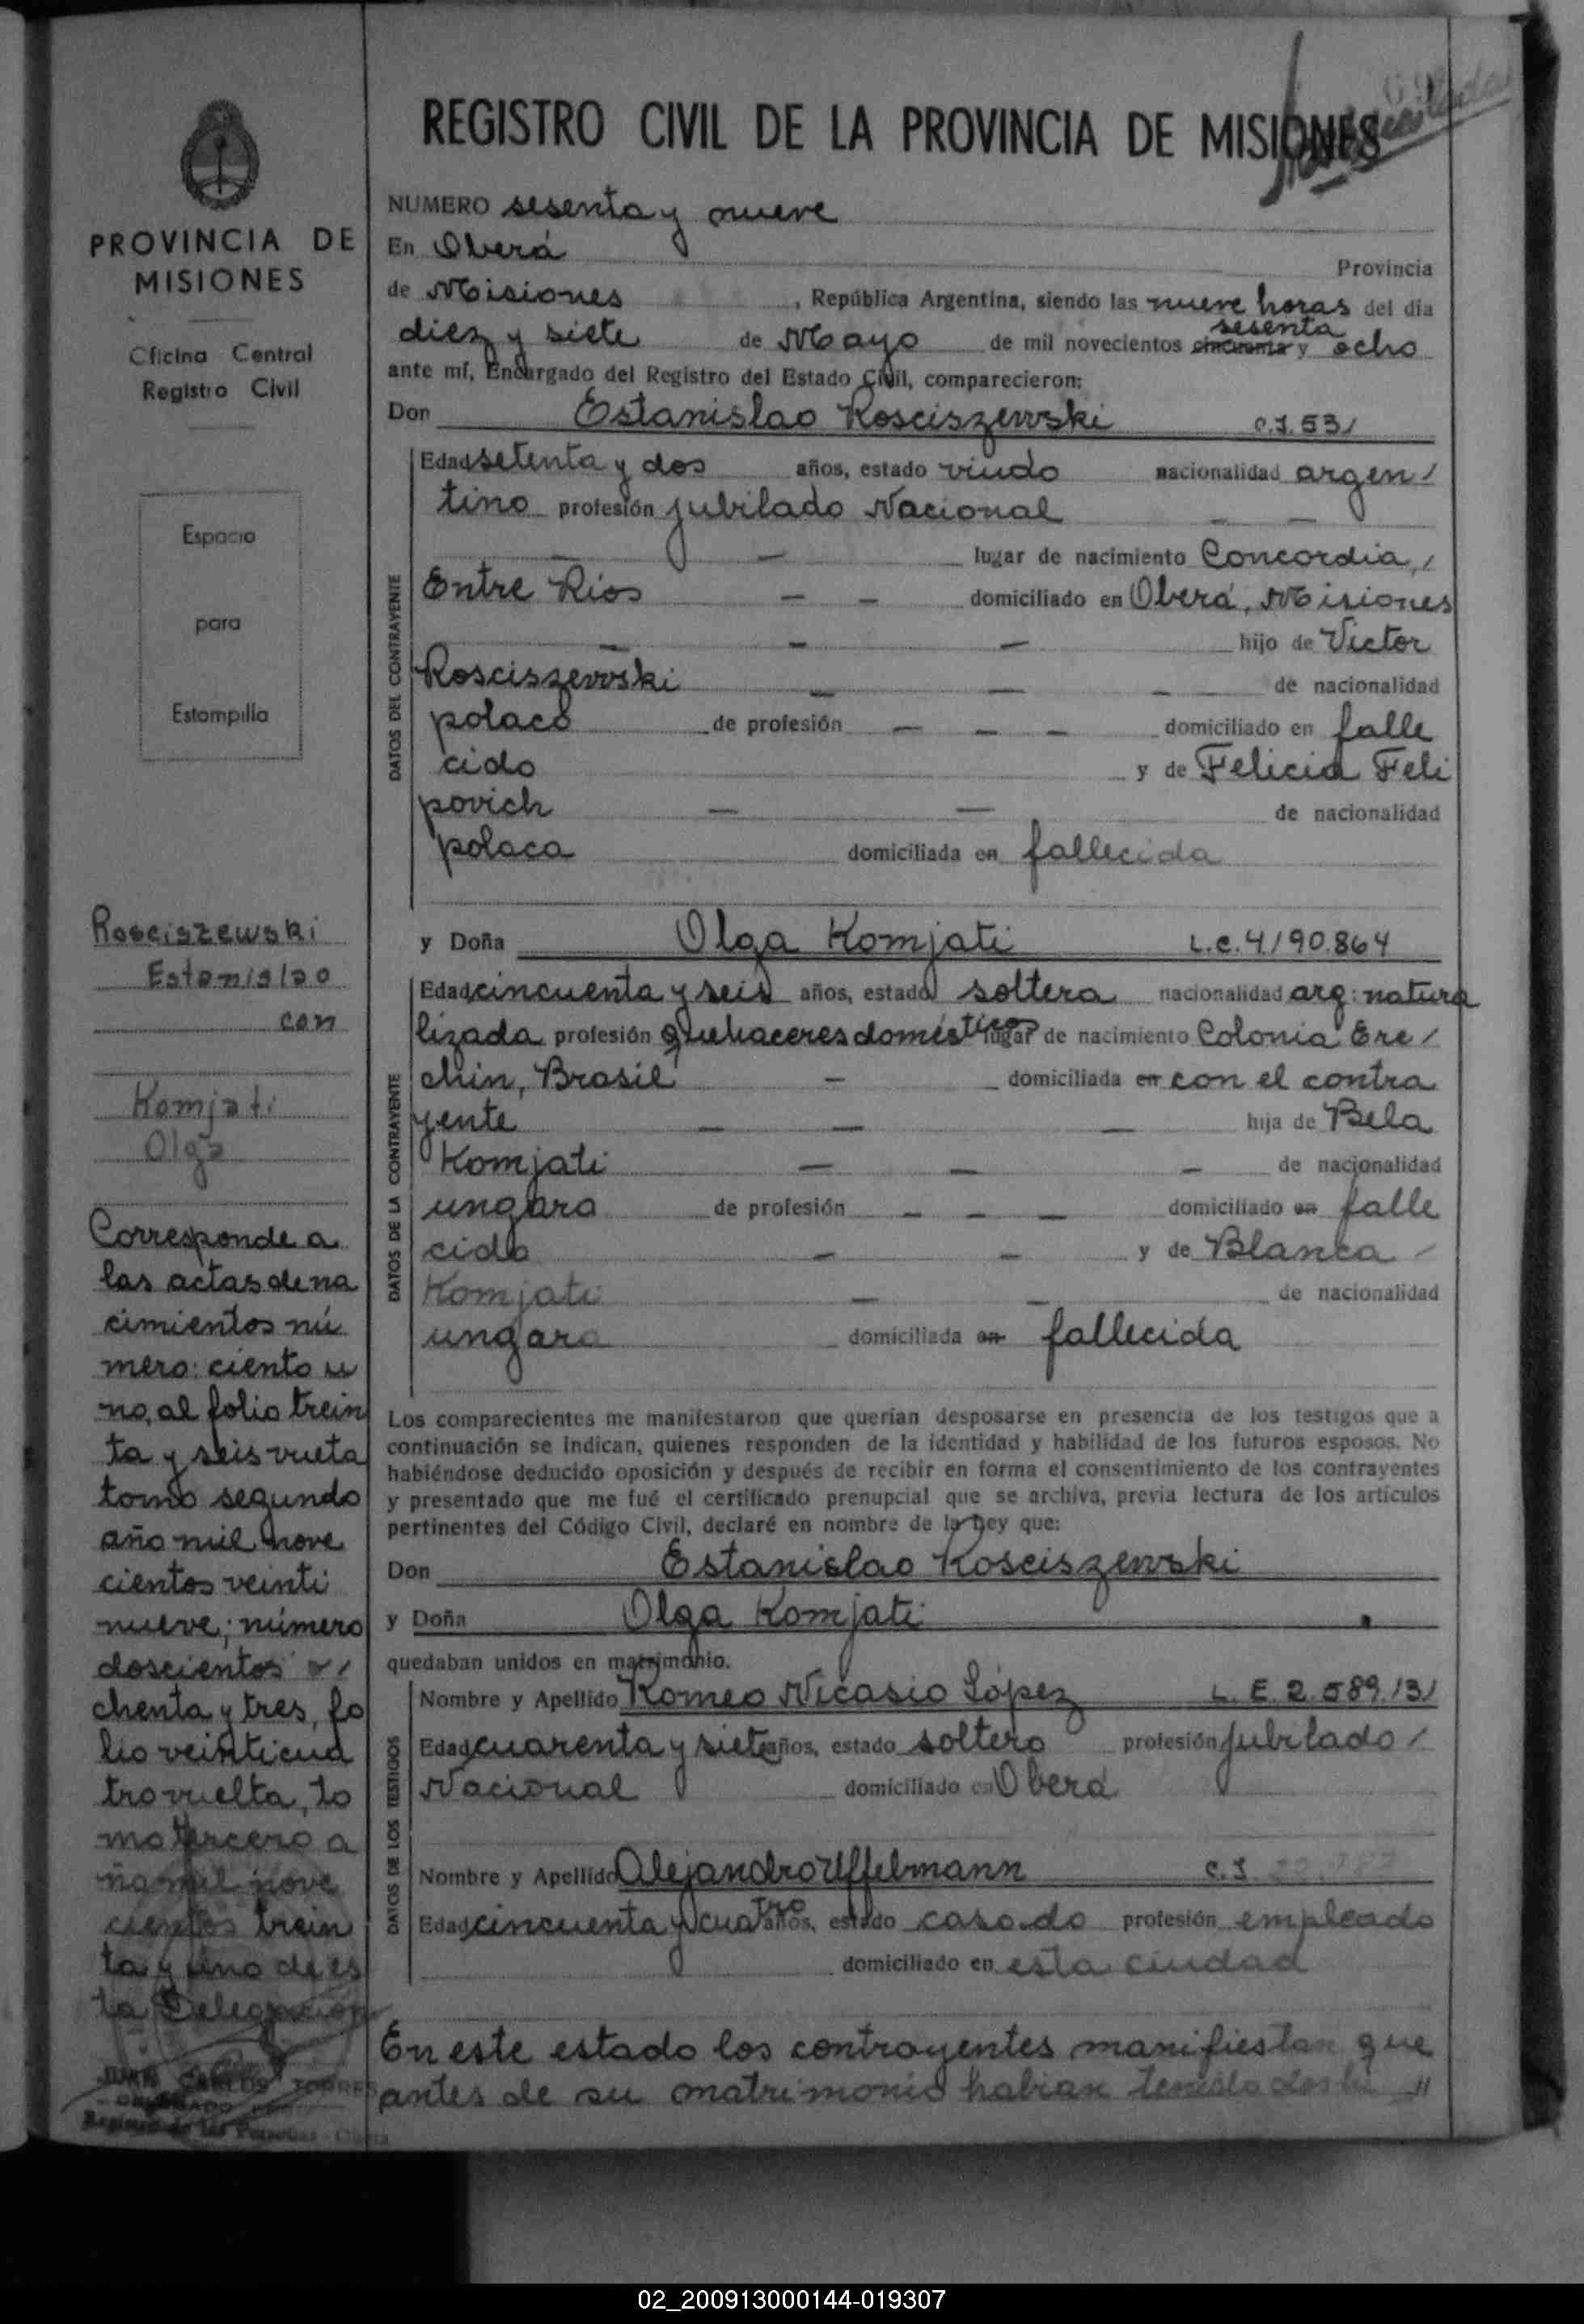 REGISTRO CIVIL DE LA PROVINCIA DE MISIONES
NUMERO sesenta y nueve
En Oberá
Provincia
de Misiones, República Argentina, siendo las nueve horas del día
sesenta
diez y siete de Mayo de mil novecientos cincuenta y ocho
ante mí, Encargado del Registro del Estado Civil, comparecieron:
Don Estanislao Rosciszewski C.I. 531
Edad setenta y dos años, estado viudo nacionalidad argen/
tino profesión jubilado Nacional - -
- - lugar de nacimiento Concordia, /
Entre Ríos - - domiciliado en Oberá, Misiones
- - - hijo de Victor
Rosciszewski - - - de nacionalidad
polaco de profesión - - - domiciliado en falle
cido y de Felicia Feli
povich - - de nacionalidad
polaca domiciliada en fallecida
DATOS DEL CONTRAYENTE
y Doña Olga Komjati L.C. 4/90.864
Edad cincuenta y seis años, estado soltera nacionalidad arg: natura
lizada profesión quehaceres domésticos lugar de nacimiento Colonia Ere/
chin, Brasil - domiciliada en con el contra
yente - - - hija de Bela
Komjati - - - de nacionalidad
ungara de profesión - - - domiciliado en falle
cido - - y de Blanca /
Komjati - - de nacionalidad
ungara domiciliada en fallecida
DATOS DE LA CONTRAYENTE
Los comparecientes me manifestaron que querían desposarse en presencia de los testigos que a
continuación se indican, quienes responden de la identidad y habilidad de los futuros esposos. No
habiéndose deducido oposición y después de recibir en forma el consentimiento de los contrayentes
y presentado que me fué el certificado prenupcial que se archiva, previa lectura de los artículos
pertinentes del Código Civil, declaré en nombre de la Ley que:
Don Estanislao Rosciszewski
y Doña Olga Komjati
quedaban unidos en matrimonio.
Nombre y Apellido Romeo Nicasio López L. E. 2.589.131
Edad cuarenta y siete años, estado soltero profesión jubilado /
Nacional domiciliado en Oberá
Nombre y Apellido Alejandro Uffelmann C.I.
Edad cincuenta y cuatro años, estado casado profesión empleado
domiciliado en esta ciudad
DATOS DE LOS TESTIGOS
En este estado los contrayentes manifiestan que
antes de su matrimonio habían tenido dos hi "
PROVINCIA DE
MISIONES
Oficina Central
Registro Civil
Espacio
para
Estampilla
Rosciszewski
Estanislao
con
Komjati
Olga
Corresponde a
las actas de na
cimientos nú
mero: ciento u
no, al folio trein
ta y seis vuelta
tomo segundo
año mil nove
cientos veinti
nueve; número
doscientos o/
chenta y tres, fo
lio veinticua
tro vuelta, to
mo tercero a
ño mil nove
cientos trein
ta y uno de es
ta Delegación
JUAN CARLOS TORRES
DELEGADO
Registro de las Personas - Oberá
02_200913000144-019307